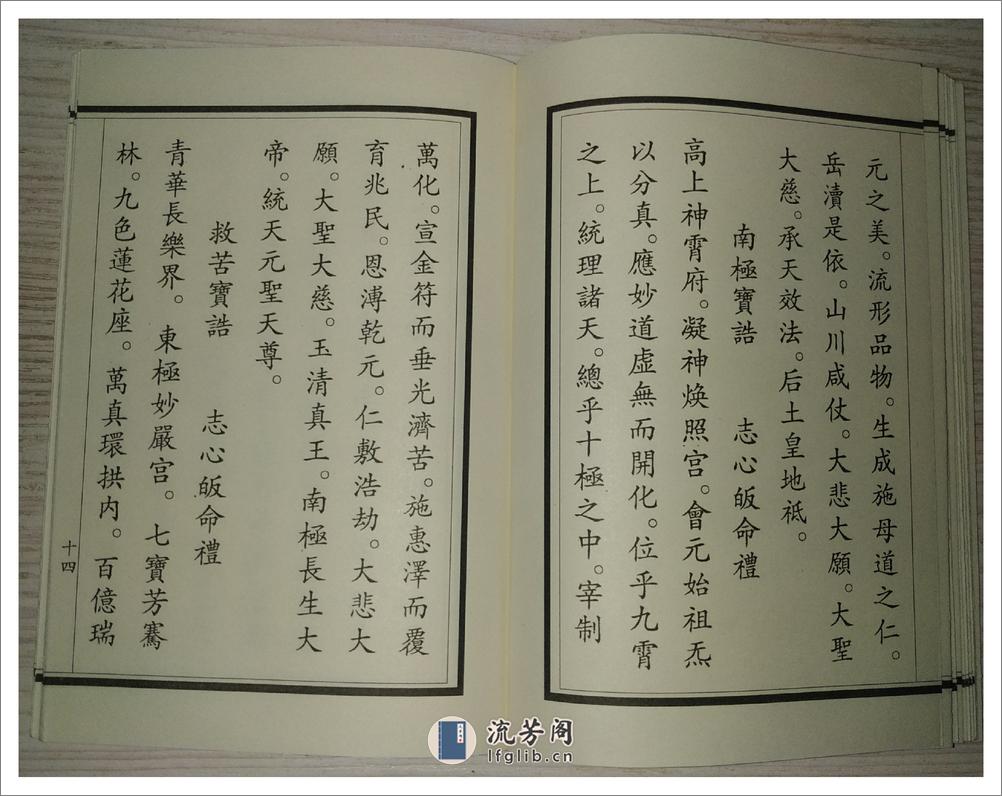 元之美。流形品物。生成施母道之仁。
岳瀆是依。山川咸仗。大悲大願。大聖
大慈。承天效法。后土皇地祇。
南極寶誥 志心皈命禮
高上神霄府。凝神焕照宫。會元始祖炁
以分真。應妙道虛無而開化。位乎九霄
之上。統理諸天。總乎十極之中。宰制
萬化。宣金符而垂光濟苦。施惠澤而覆
育兆民。恩溥乾元。仁敷浩劫。大悲大
願。大聖大慈。玉清真王。南極長生大
帝。統天元聖天尊。
救苦寶誥 志心皈命禮
青華長樂界。東極妙嚴宫。七寶芳騫
林。九色蓮花座。萬真環拱内。百億瑞
十四
流芳阁
lfglib.cn